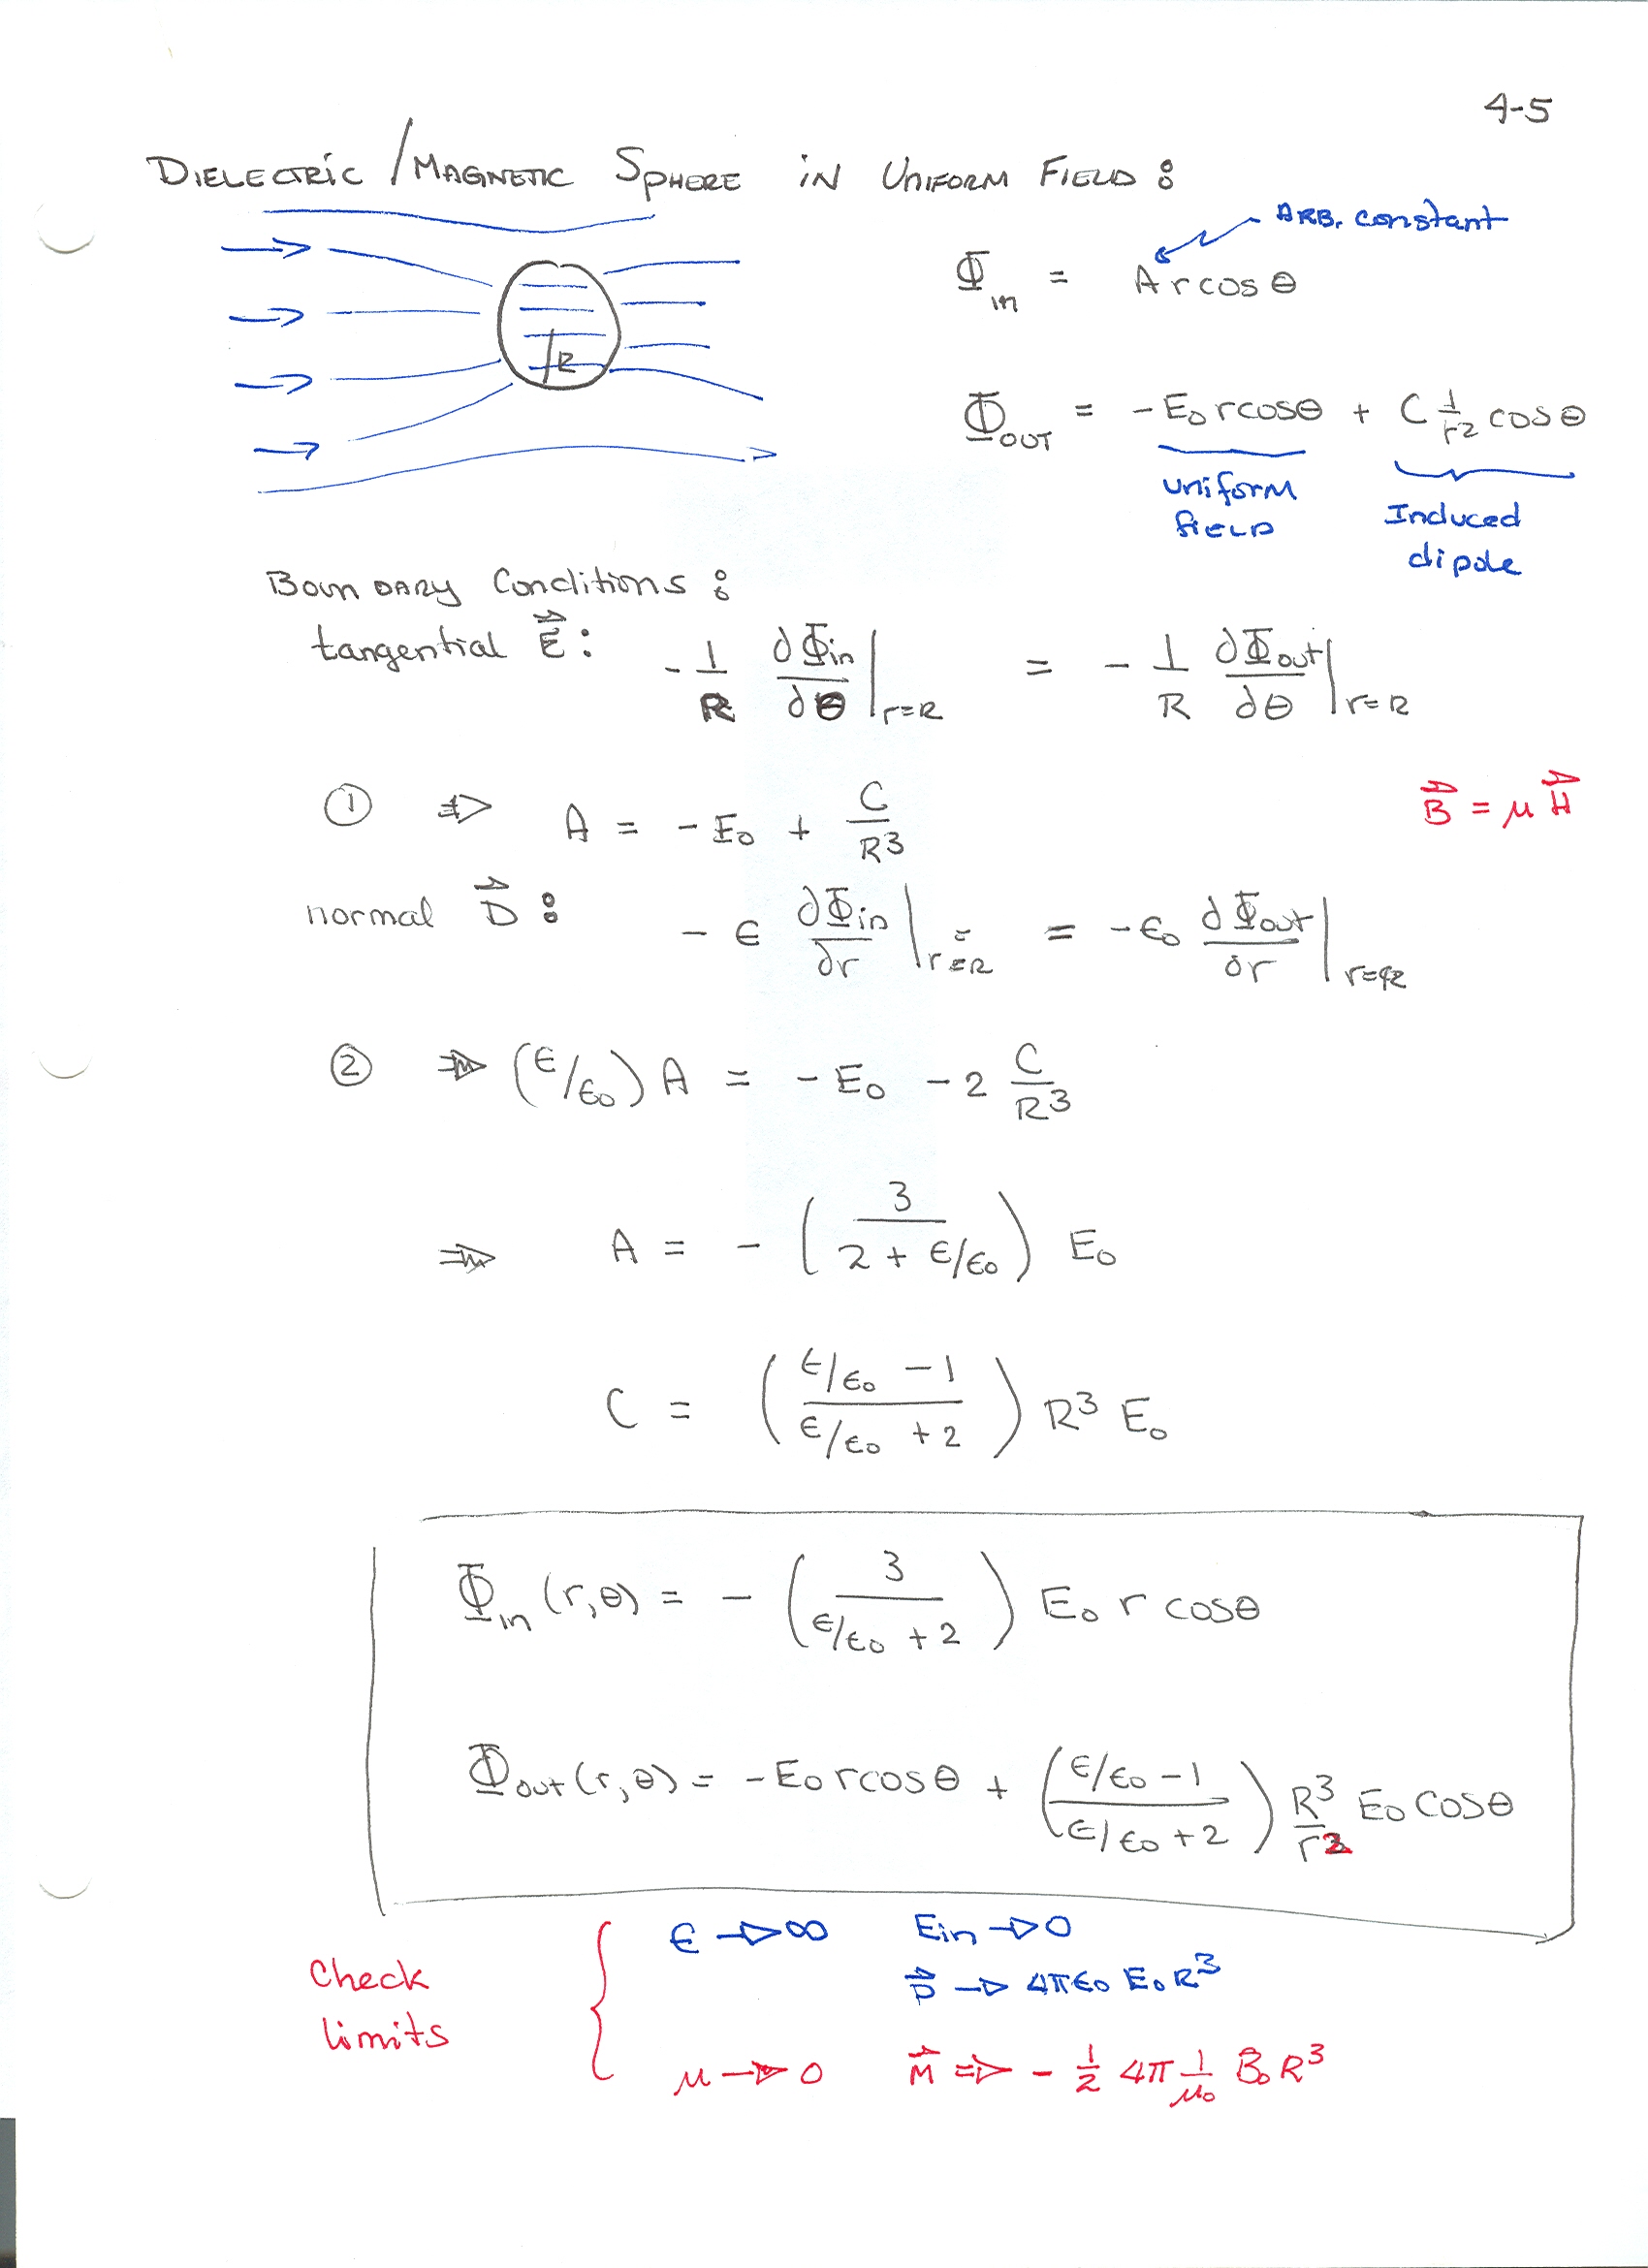 4-5
DIELECTRIC / MAGNETIC SPHERE IN UNIFORM FIELD :
ARB. constant
Φ_in = A r cos θ
R
Φ_OUT = - E₀ r cos θ + C 1/r² cos θ
uniform field
Induced dipole
Boundary Conditions :
tangential E⃗ : - 1/R ∂Φ_in/∂θ |_r=R = - 1/R ∂Φ_out/∂θ |_r=R
① ⇒ A = - E₀ + C/R³
B⃗ = μ H⃗
normal D⃗ : - ϵ ∂Φ_in/∂r |_r=R = - ϵ₀ ∂Φ_out/∂r |_r=R
② ⇒ (ϵ/ϵ₀) A = - E₀ - 2 C/R³
⇒ A = - ( 3 / (2 + ϵ/ϵ₀) ) E₀
C = ( (ϵ/ϵ₀ - 1) / (ϵ/ϵ₀ + 2) ) R³ E₀
Φ_in (r,θ) = - ( 3 / (ϵ/ϵ₀ + 2) ) E₀ r cos θ
Φ_out (r,θ) = - E₀ r cos θ + ( (ϵ/ϵ₀ - 1) / (ϵ/ϵ₀ + 2) ) R³/r² E₀ cos θ
Check limits
ϵ → ∞ E_in → 0
p⃗ → 4πϵ₀ E₀ R³
μ → 0 M⃗ ⇒ - 1/2 4π 1/μ₀ B₀ R³